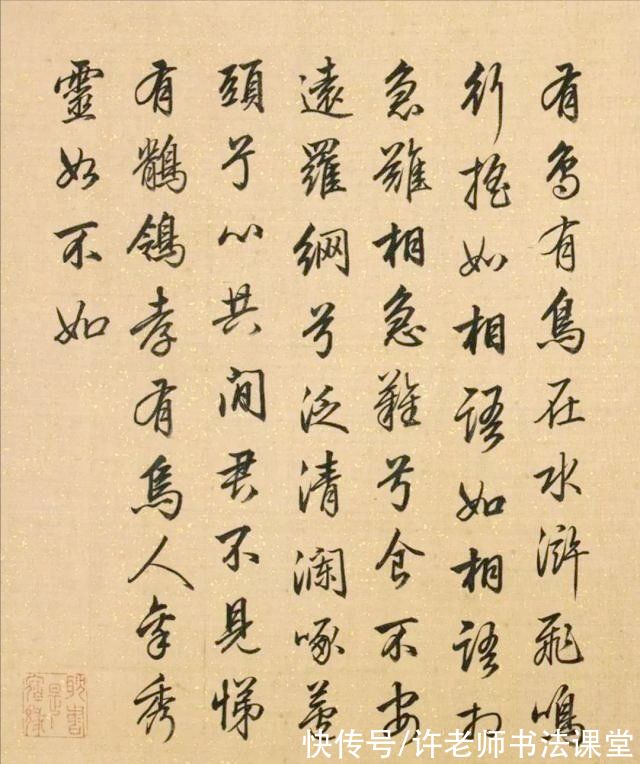 有鸟有鳥在水滸飛鳴
行搖如相語如相語相
急難相急難兮食不安
遠羅網兮泛清瀾啄
頭兮心共閒君不見悌
有鶺鴒孝有烏人秀
靈不如
耽書是宿緣
快传号/许老师书法课堂